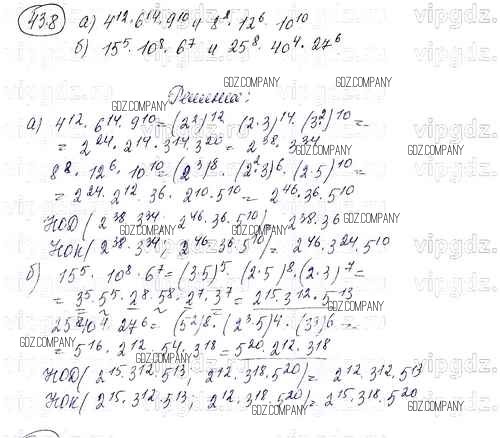 43.8 а) 4^12 · 6^14 · 9^10 и 8^8 · 12^6 · 10^10
б) 15^5 · 10^8 · 6^7 и 25^8 · 40^4 · 27^6
Решение:
а) 4^12 · 6^14 · 9^10 = (2^2)^12 · (2·3)^14 · (3^2)^10 =
= 2^24 · 2^14 · 3^14 · 3^20 = 2^38 · 3^34
8^8 · 12^6 · 10^10 = (2^3)^8 · (2^2·3)^6 · (2·5)^10 =
= 2^24 · 2^12 · 3^6 · 2^10 · 5^10 = 2^46 · 3^6 · 5^10
НОД (2^38 · 3^34; 2^46 · 3^6 · 5^10) = 2^38 · 3^6
НОК (2^38 · 3^34; 2^46 · 3^6 · 5^10) = 2^46 · 3^24 · 5^10
б) 15^5 · 10^8 · 6^7 = (3·5)^5 · (2·5)^8 · (2·3)^7 =
= 3^5 · 5^5 · 2^8 · 5^8 · 2^7 · 3^7 = 2^15 · 3^12 · 5^13
25^8 · 40^4 · 27^6 = (5^2)^8 · (2^3·5)^4 · (3^3)^6 =
= 5^16 · 2^12 · 5^4 · 3^18 = 5^20 · 2^12 · 3^18
НОД (2^15 · 3^12 · 5^13; 2^12 · 3^18 · 5^20) = 2^12 · 3^12 · 5^13
НОК (2^15 · 3^12 · 5^13; 2^12 · 3^18 · 5^20) = 2^15 · 3^18 · 5^20